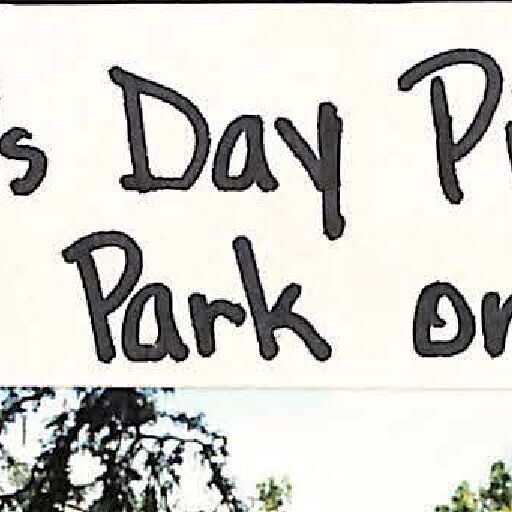 's Day P
Park on